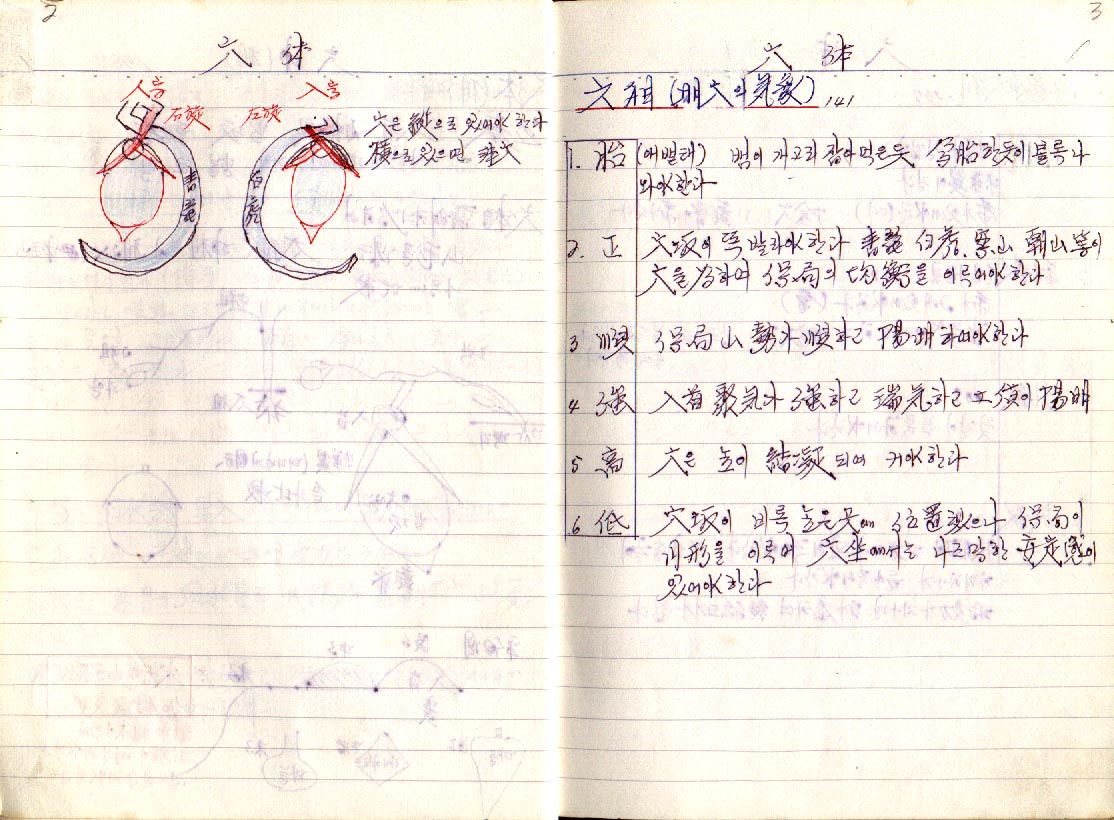 2
穴 本
入首
右旋
入首
左旋
青龍
白虎
穴은 縱으로 있어야 한다
橫으로 있으면 非穴
3
穴 本
穴相 (明穴의 気象) 141
1. 胎 (애밸태) 뱀이 개고리 잡아먹은듯 孕胎한듯이 불룩나
와야한다
2. 正 穴坂이 똑 발라야한다 青龍 白虎, 案山 朝山 等이
穴을 為하여 保局의 均衡을 이루어야한다
3 順 保局山勢가 順하고 陽明하여야한다
4 強 入首 聚気가 強하고 瑞気하고 土質이 陽明
5 高 穴은 높이 結凝되여 커야한다
6 低 穴坂이 비록 높은곳에 位置했으나 保局이
円形을 이루어 穴坐에서는 나즈막한 安定感이
있어야한다